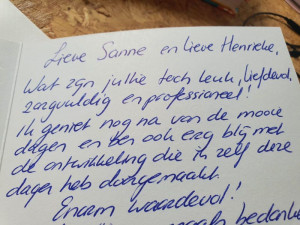 Lieve Sanne en lieve Henrieke,
Wat zijn jullie toch leuk, liefdevol,
zorgvuldig en professioneel!
Ik geniet nog na van de mooie
dagen en ben ook erg blij met
de ontwikkeling die ik zelf deze
dagen heb doorgemaakt.
Enorm waardevol!
nogmaals bedankt